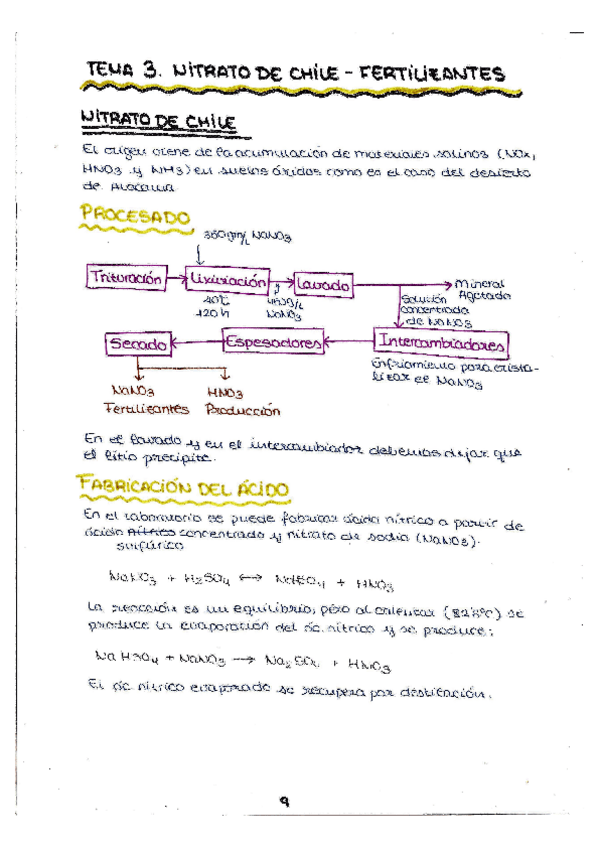 TEMA 3. NITRATO DE CHILE - FERTILIZANTES
NITRATO DE CHILE
El origen viene de la acumulación de materiales salinos (NOx,
HNO3 y NH3) en suelos áridos como es el caso del desierto
de Atacama
PROCESADO
350gm/L NaNO3
Trituración
Lixiviación
Lavado
Mineral
Agotado
40°C
120h
450g/L
NaNO3
Solución
concentrada
de NaNO3
Secado
Espesadores
Intercambiadores
Enfriamiento para crista-
lizar el NaNO3
NaNO3
Fertilizantes
HNO3
Producción
En el lavado y en el intercambiador debemos dejar que
el litio precipite.
FABRICACIÓN DEL ÁCIDO
En el laboratorio se puede fabricar ácido nítrico a partir de
ácido nítrico concentrado y nitrato de sodio (NaNO3).
sulfúrico
NaNO3 + H2SO4 ⟷ NaHSO4 + HNO3
La reacción es un equilibrio, pero al calentar (82'6ºC) se
produce la evaporación del ác. nítrico y se produce:
NaHSO4 + NaNO3 → Na2SO4 + HNO3
El ác nítrico evaporado se recupera por destilación.
9